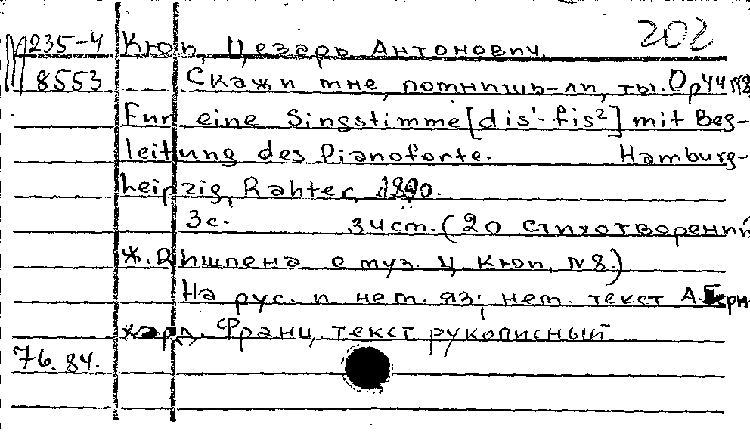 202
235-4 Кюи, Цезарь Антонович.
8553 Скажи мне, помнишь-ли, ты. Op 44 №8
Für eine Singstimme [dis¹-fis²] mit Beg-
leitung des Pianoforte. Hamburg-
Leipzig, Rahter, 1890.
3с. 3 ист. (20 стихотворений
Ж. Ришпена с муз. Ц. Кюи, №8.)
На рус. и нем. яз; нем. текст А. Берн-
хард. Франц. текст рукописный
76.84.